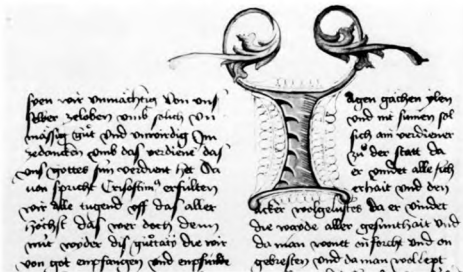 syen wir vnmächtig von vns
selber zeloben vmb solich vn
mässig gůt vnd vnwirdig Im
zedancken vmb das verdienē das
vns gottes sun verdient het Da
von spricht erfulten
wir alle tugend off das aller
höchst das wer doch denn
mit wyder dis die wir
von got empfangen vnd empfinde
Iagen gachen ylen
vnd mit sinnen sol
sich ain verdiener
zů der statt da
er vindet alle sich
erhait vnd den
acker wolgelustes da er vindet
die wayde aller gesunthait vnd
da man wonet on forcht vnd on
gebresten vnd da man wol lept